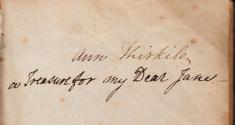 Ann Thirkile
a Treasure for my Dear Jane